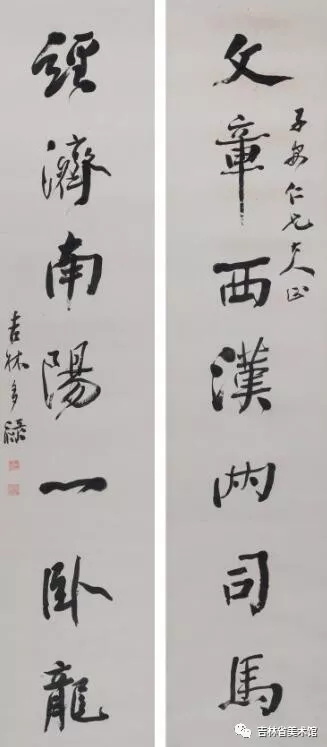 文章西漢兩司馬
子安仁兄大人正
經濟南陽一卧龍
吉林多祿
吉林省美术馆